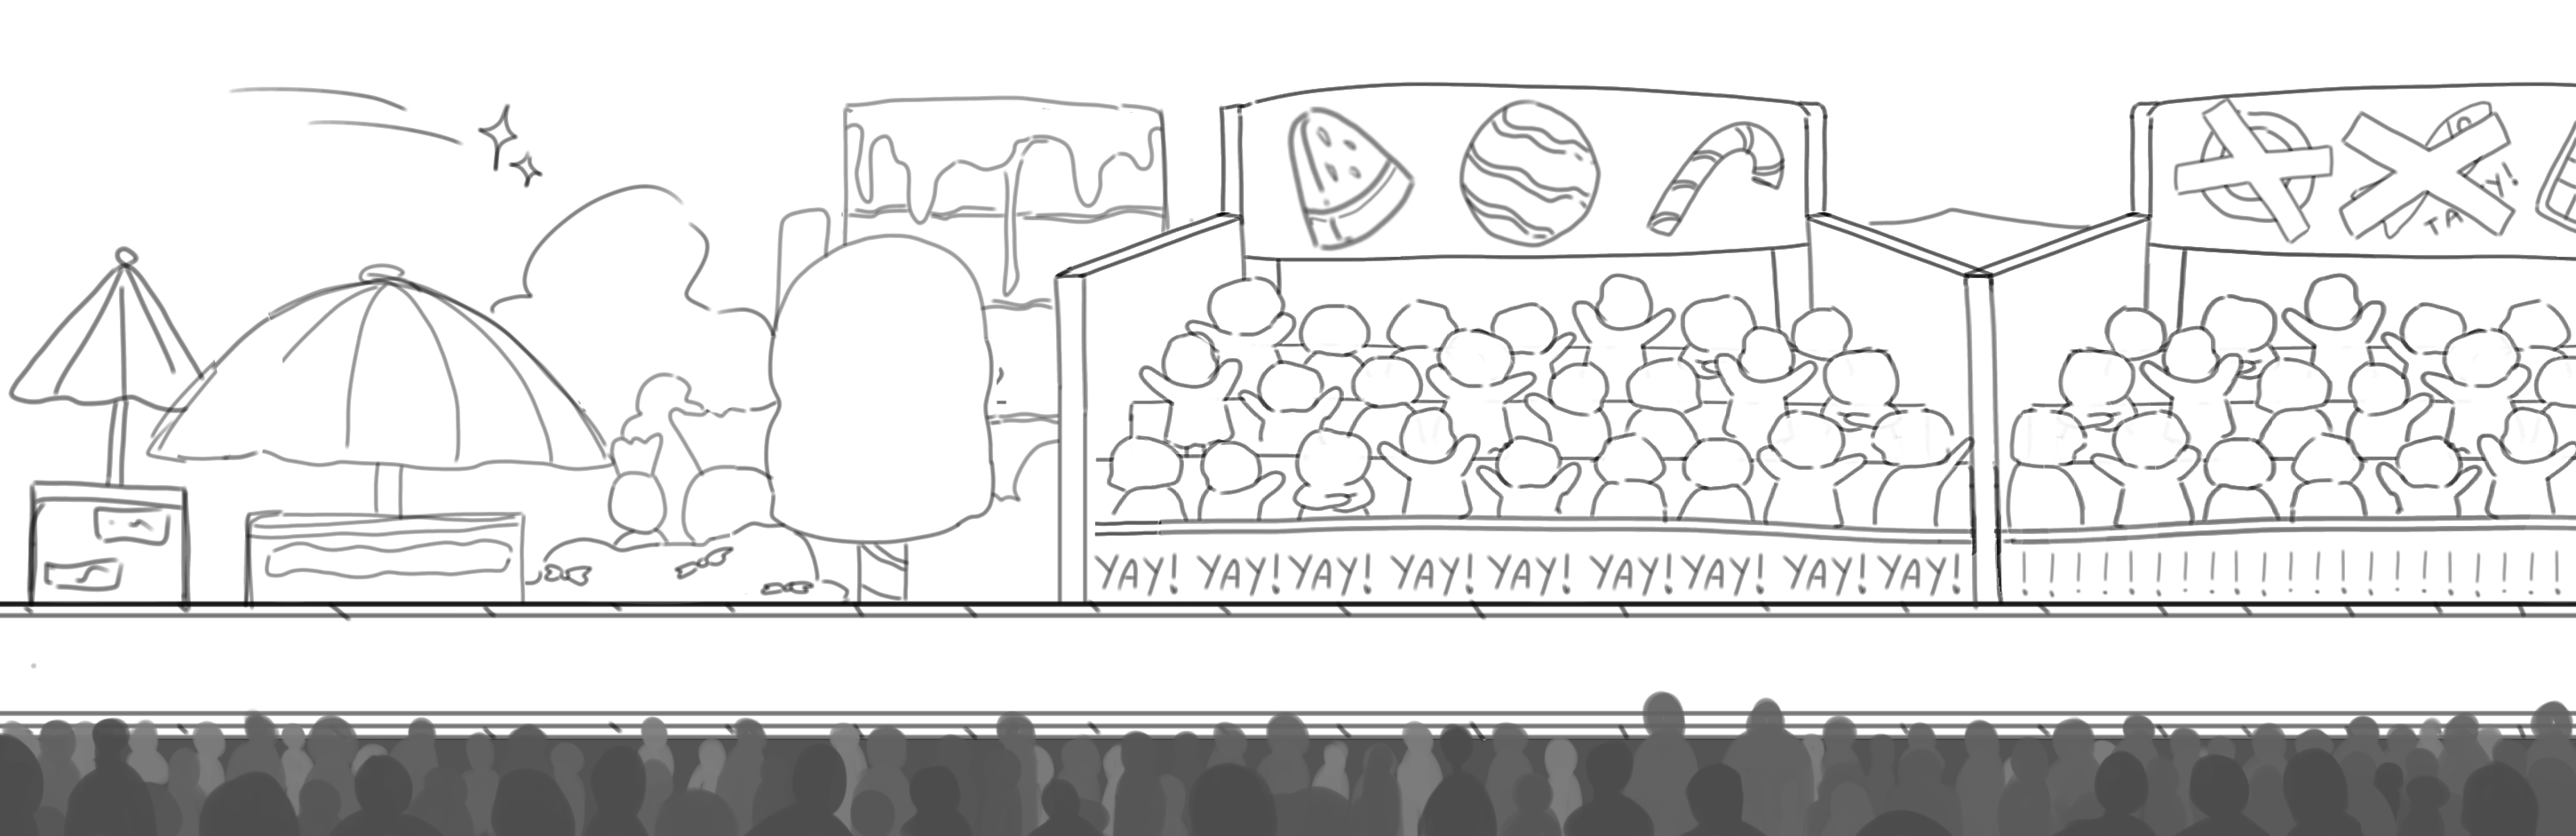 TA Y!
YAY! YAY! YAY! YAY! YAY! YAY! YAY! YAY! YAY! ! ! ! ! ! ! ! ! ! ! ! ! ! ! ! ! ! ! ! ! !